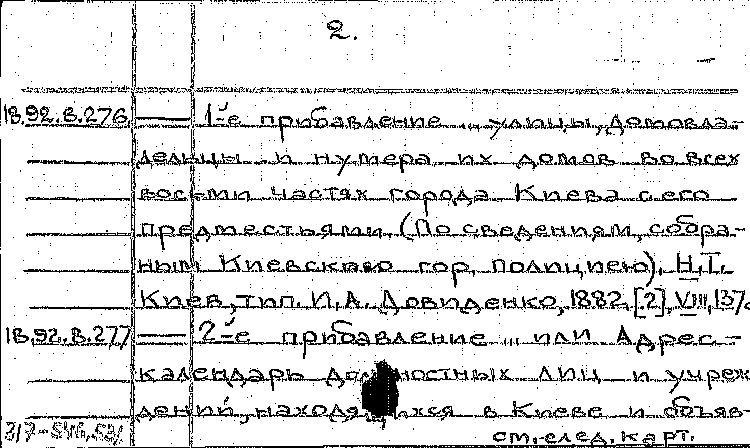 2.
18.92.8.276 — 1-е прибавление... улицы, домовла-
дельцы и нумера их домов во всех
восьми частях города Киева с его
предместьями. (По сведениям, собра-
ным Киевскою гор. полициею). Н.Т.
Киев, тип. И.А. Довиденко, 1882. [2], VIII, 137с
18.92.8.277 — 2-е прибавление... или Адрес-
календарь должностных лиц и учреж
дений, находящихся в Киеве и объяв-
см. след. карт.